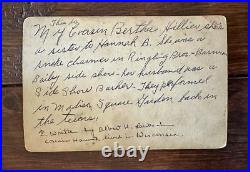 This is
My Cousin Bertha Hillier, she's
a sister to Hannah B. She was a
snake charmer in Ringling Bros - Barnum
Bailey side show - her husband was a
Side Show Barker - They performed
in Madison Square Garden back in
the teens.
by Albert H.
Cousin Hannah lived in Wisconsin